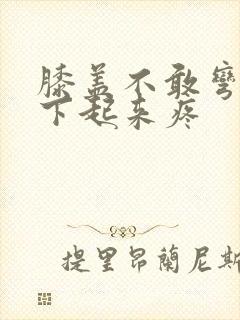 膝盖不敢弯
下起来疼
提里昂蘭尼斯